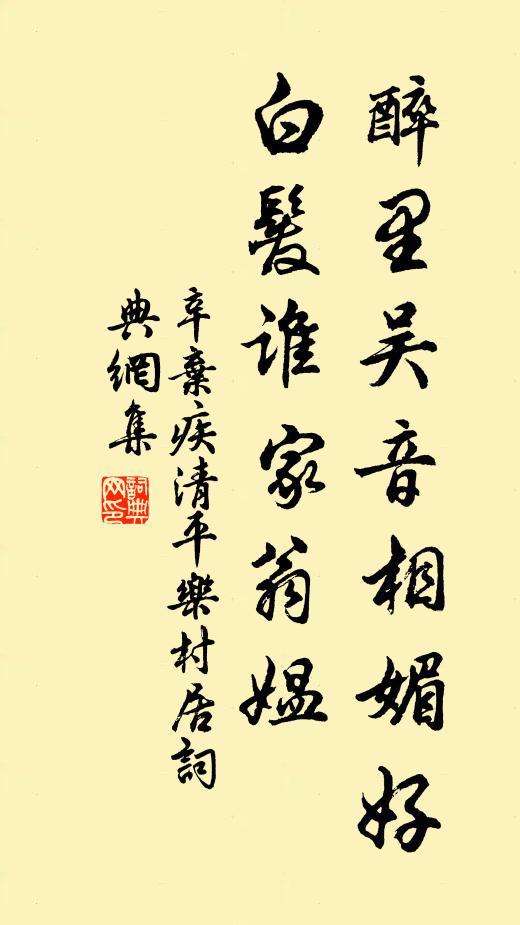 醉里吴音相媚好
白髮谁家翁媪
辛棄疾清平樂村居詞
典網集
詞典网印